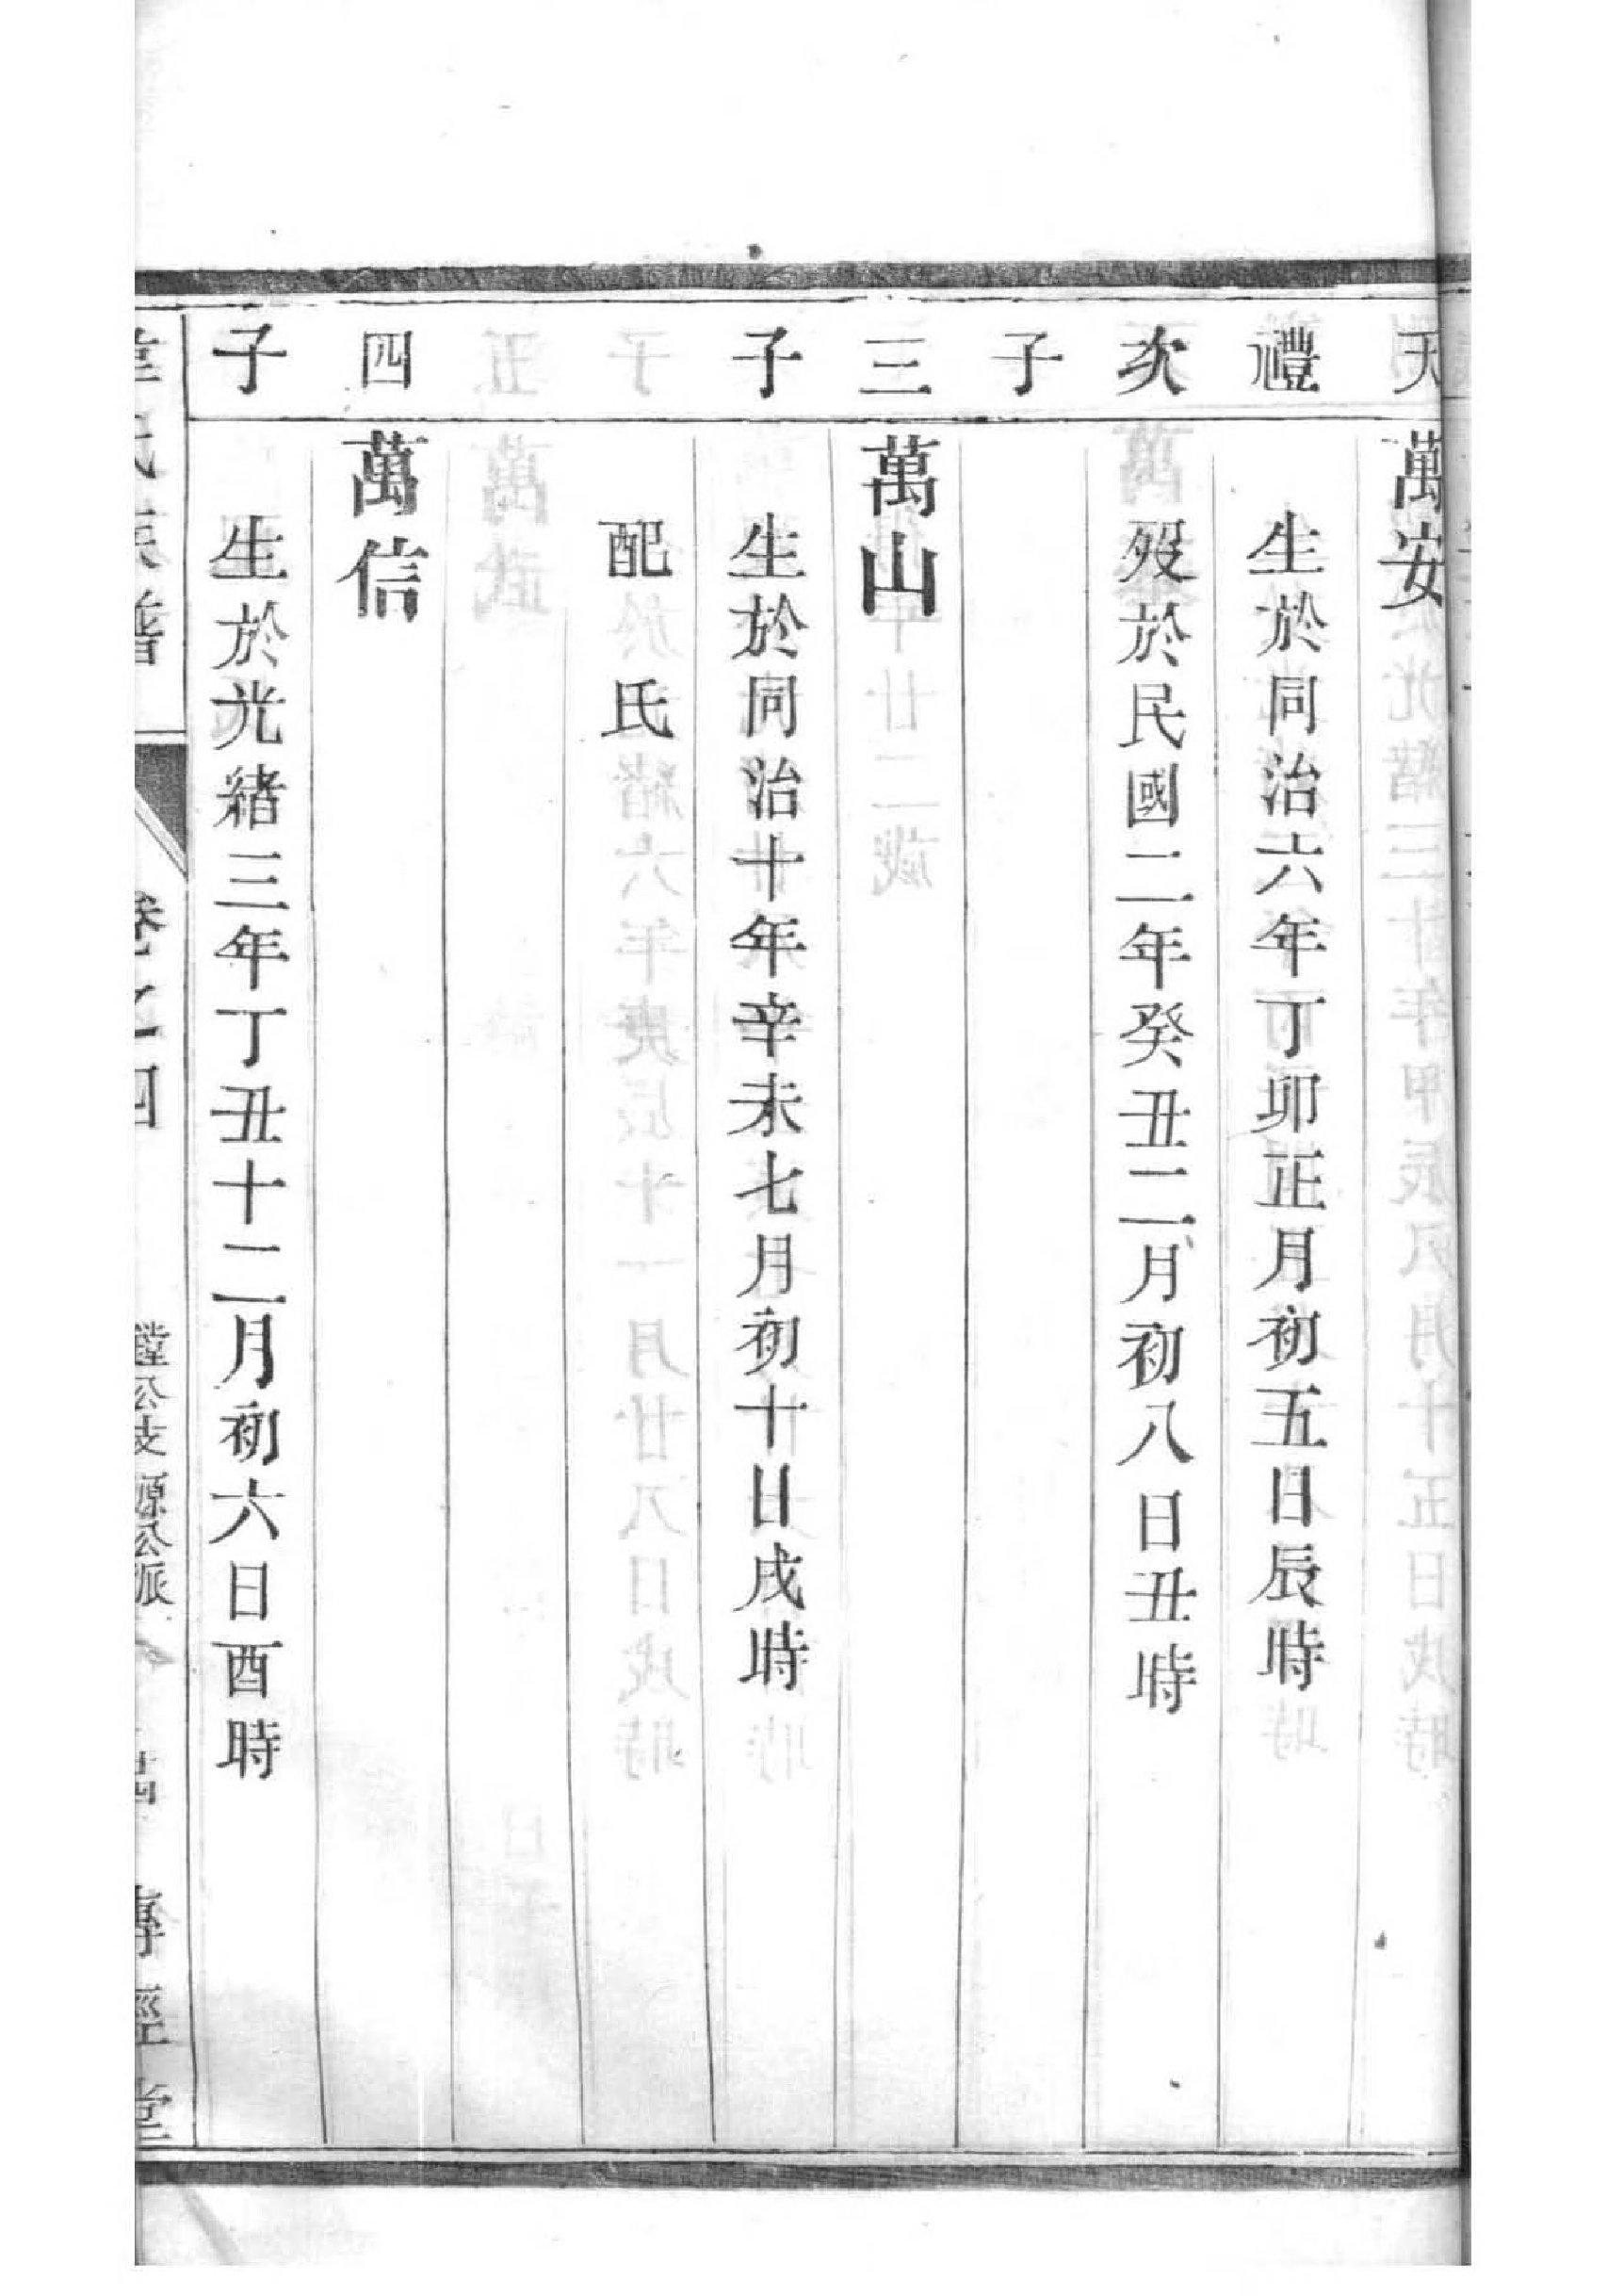 天 萬安
禮 生於同治六年丁卯正月初五日辰時
次 歿於民國二年癸丑二月初八日丑時
子
三 萬山
子 生於同治十年辛未七月初十日戌時
配 氏
四 萬信
子 生於光緒三年丁丑十二月初六日酉時
氏族譜
卷之四
公支源公派
傳經堂